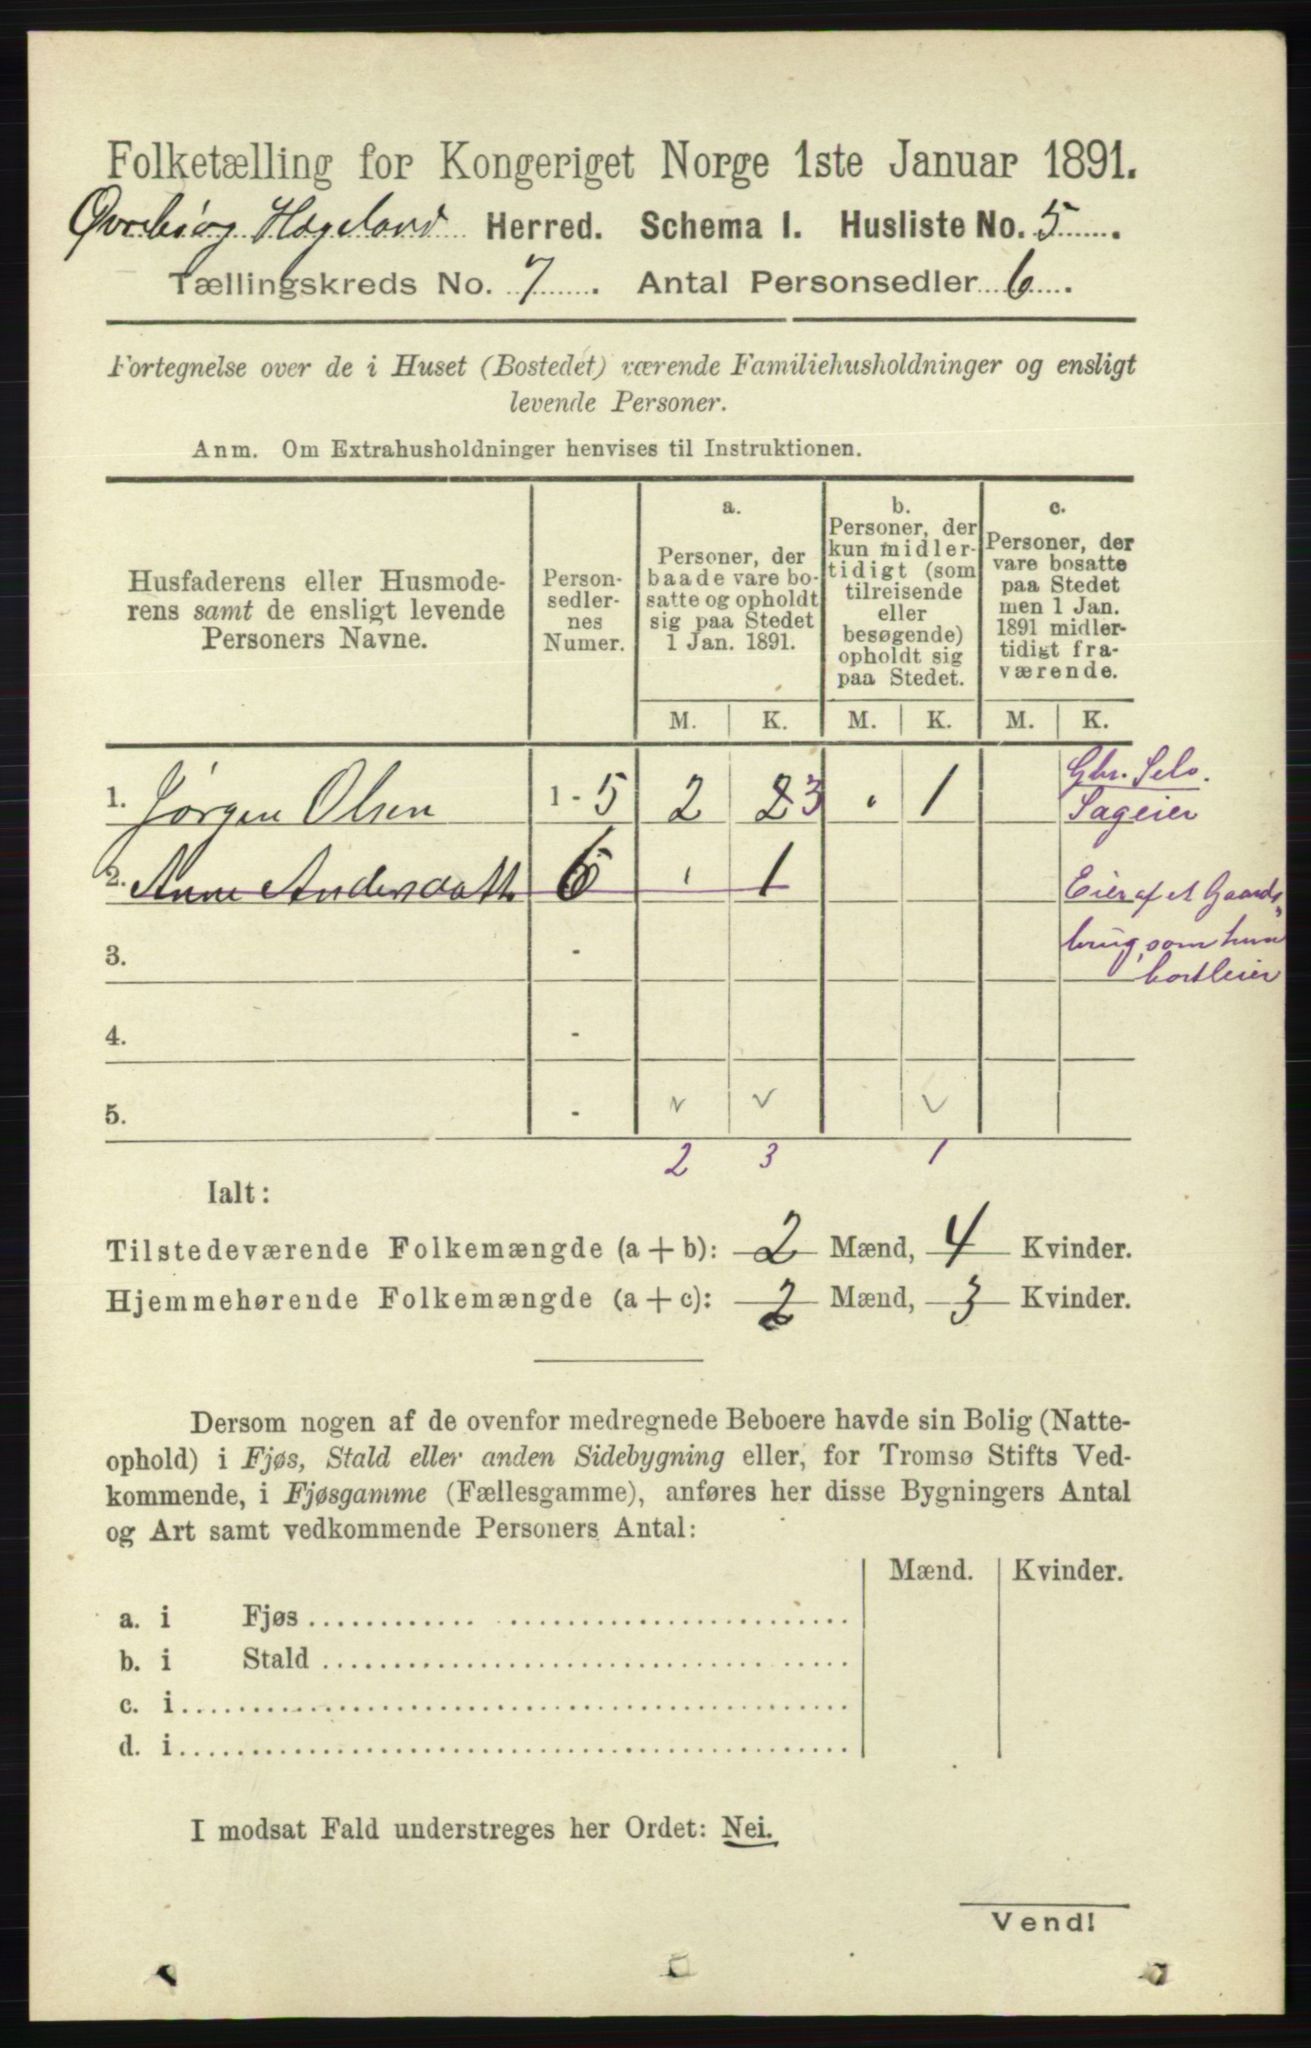 Folketælling for Kongeriget Norge 1ste Januar 1891.
Øvrebø og Hægeland Herred. Schema I. Husliste No. 5.
Tællingskreds No. 7. Antal Personsedler 6.
Fortegnelse over de i Huset (Bostedet) værende Familiehusholdninger og ensligt
levende Personer.
Anm. Om Extrahusholdninger henvises til Instruktionen.
Husfaderens eller Husmode-
rens samt de ensligt levende
Personers Navne.
Person-
sedler-
nes
Numer.
a.
Personer, der
baade vare bo-
satte og opholdt
sig paa Stedet
1 Jan. 1891.
b.
Personer, der
kun midler-
tidigt (som
tilreisende
eller
besøgende)
opholdt sig
paa Stedet.
c.
Personer, der
vare bosatte
paa Stedet
men 1 Jan.
1891 midler-
tidigt fra-
værende.
M. K. M. K. M. K.
1. Jørgen Olsen 1 - 5 2 3 1 Gbr. Selv.
Sageier
2. Anne Andersdatt. 6 1 Eier af et Gaards-
3. - brug, som hun
bortleier
4. -
5. -
2 3 1
Ialt:
Tilstedeværende Folkemængde (a + b): 2 Mænd, 4 Kvinder.
Hjemmehørende Folkemængde (a + c): 2 Mænd, 3 Kvinder.
Dersom nogen af de ovenfor medregnede Beboere havde sin Bolig (Natte-
ophold) i Fjøs, Stald eller anden Sidebygning eller, for Tromsø Stifts Ved-
kommende, i Fjøsgamme (Fællesgamme), anføres her disse Bygningers Antal
og Art samt vedkommende Personers Antal:
Mænd. Kvinder.
a. i Fjøs
b. i Stald
c. i
d. i
I modsat Fald understreges her Ordet: Nei.
Vend!